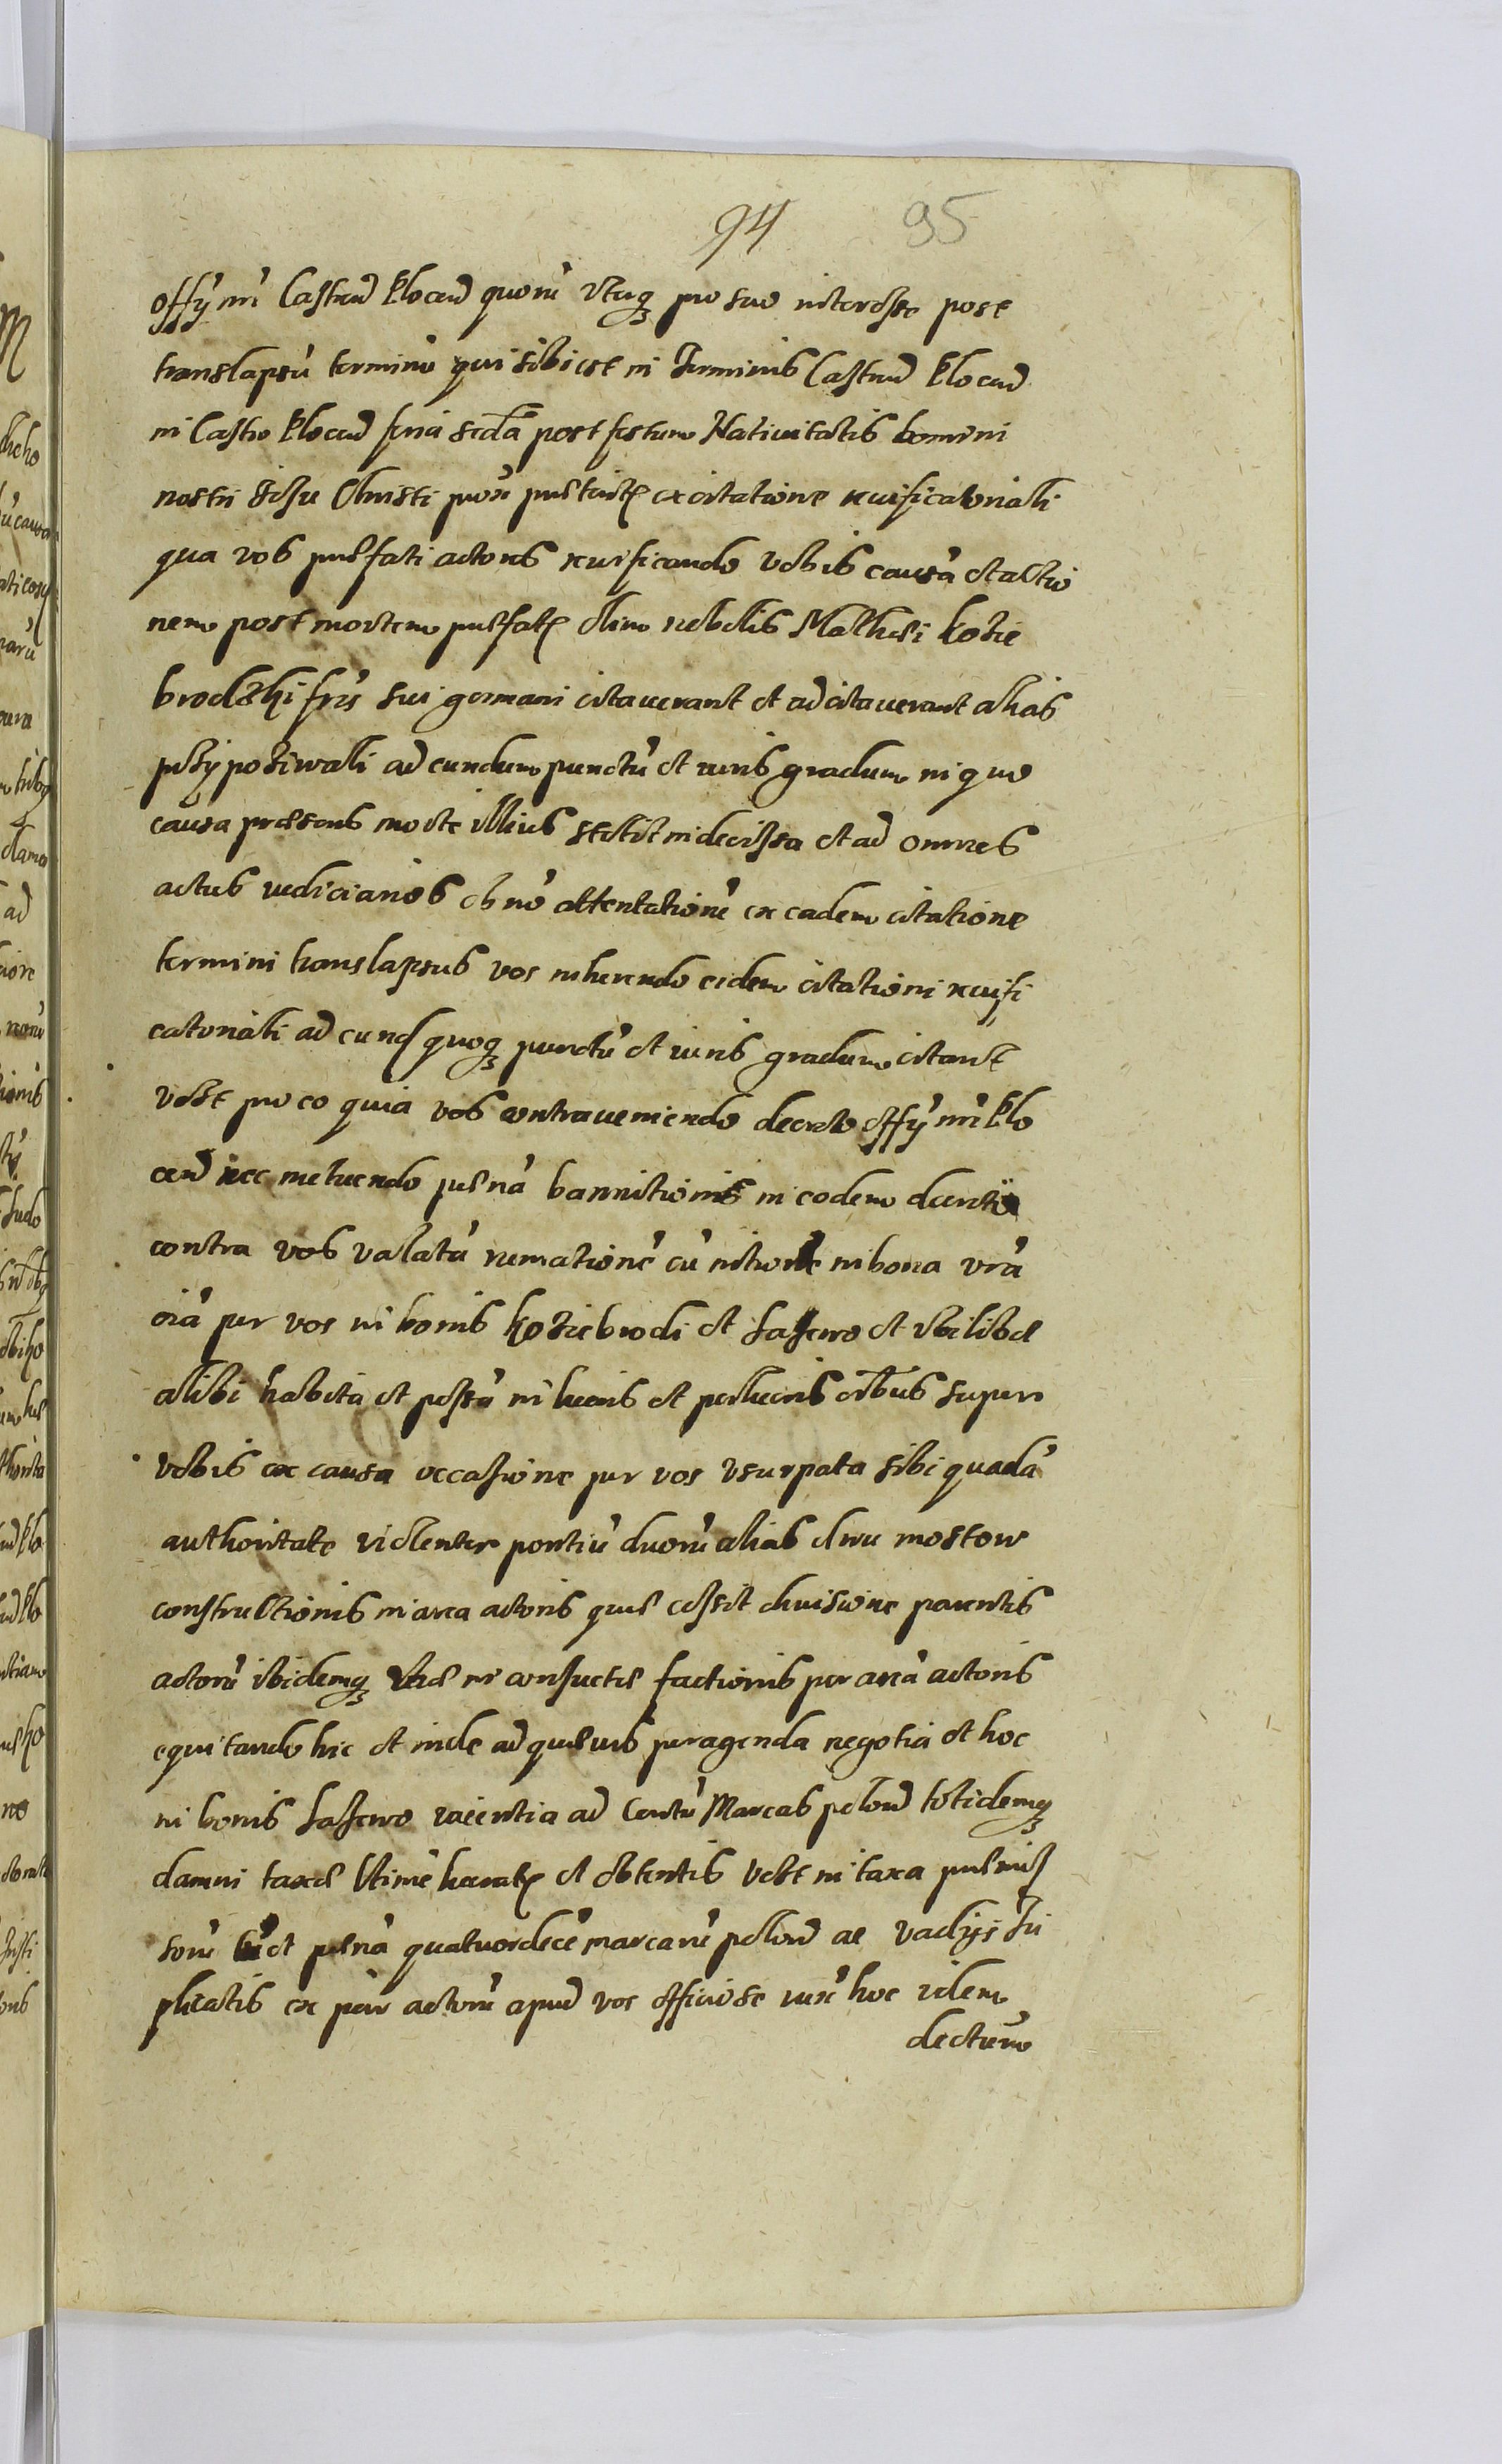 94 95
offÿ nri Castren̄ Plocen̄ quorū vterq₃ pro suo interesse post
translapsū terminū qui sibi est in Terminis Castren̄ Plocen̄
in Castro Plocen̄ feria secda post festum Natiuitatis Domini
nostri Jesu Christi proxi preterit ex citatione reuificatoriali
qua vos prefati actores reuificando vobis causā et actio
nem post mortem prefati olim nobilis Mathei Kozie
brodzki fris sui germani citauerant et adcitauerant alias
przÿpoziwali ad eundem punctū et iuris gradum in quo
causa presens morte illius stetit indecissa et ad omnes
actus iudiciarios ob nō attentationē ex eadem citatione
termini translapsus vos inherendo eidem citationi reuifi
catoriali ad eund quoq₃ punctū et iuris gradum citant
vobst pro eo quia vos contraueniendo decreto offÿ nri Plo
cen̄ nec metuendo penā bannitionis in eodem decreto
contra vos valatā rumationē cū intro in bona vrā
oīa per vos in bonis Koziebrodi et Lassewo et vbilibet
alibi habita et possā in lucris et perlucris oībus super
vobis ex causa occasione per vos vsurpata sibi quadā
authoritate violenter pontiū duorū alias dwu mostow
constructionis in area actoris que cessit diuisione parentis
actorū ibidemq₃ vie inconsuete factionis per areā actoris
equitando hic et inde ad queuis peragenda negotia et hoc
in bonis Lassewo iacentia ad Centū Marcas polon̄ totidemq₃
damni taxate vltime lucrat et obtentis vobst in taxa premis
sorū et penā quatuordecē marcarū polon̄ ac vadÿs tri
plicatis ex par actorū apud vos officiose iuxē hoc idem
dectum